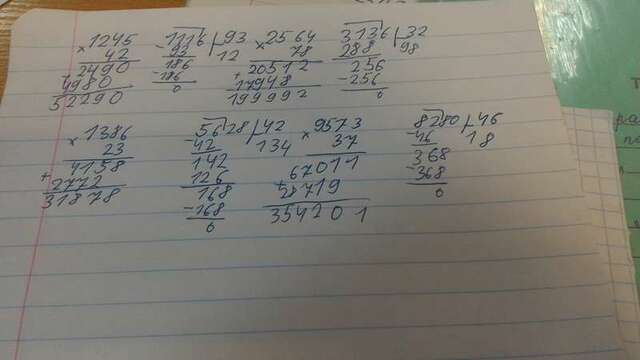 × 1245
42
2490
+ 4980
52290
1116 | 93
- 93 12
186
- 186
0
× 2564
78
20512
+ 17948
199992
3136 | 32
288 98
256
- 256
0
× 1386
23
4158
+ 2772
31878
5628 | 42
- 42 134
142
126
168
- 168
0
× 9573
37
67011
+ 28719
354201
8280 | 46
- 46 18
368
- 368
0